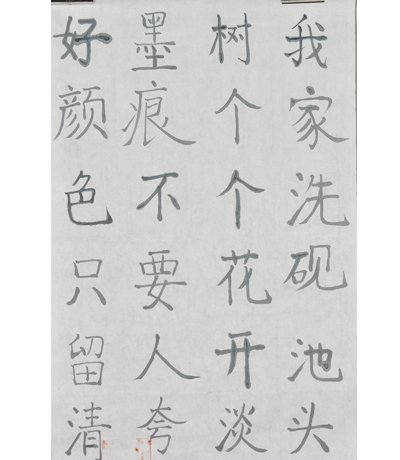 我家洗砚池头
树个个花开淡
墨痕不要人夸
好颜色只留清